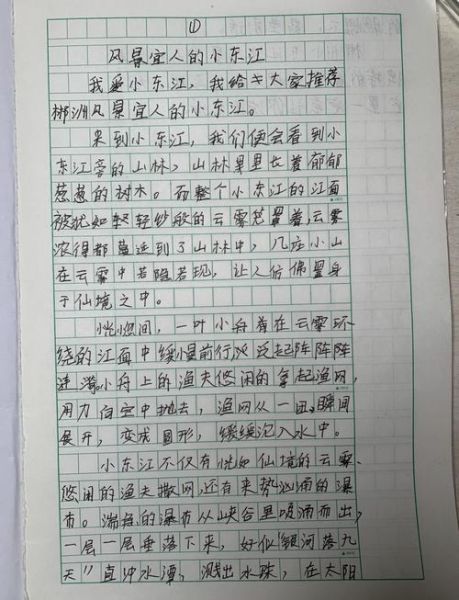 (1)
风景宜人的小东江
我爱小东江,我给大家推荐
郴洲风景宜人的小东江。
来到小东江,我们便会看到小
东江旁的山林,山林里里长着郁郁
葱葱的树木。而整个小东江的江面
被犹如轻轻纱般的云雾笼罩着云雾
浓得都蔓延到了山林中,几座小山
在云雾中若隐若现,让人仿佛置身
于仙境之中。
恍惚间,一叶小舟着在云雾环
绕的江面中缓慢前行泛起阵阵阵
涟漪小舟上的渔夫悠闲的拿起渔网,
用力向空中抛去,渔网从一团,瞬间
展开,变成圆形,缓缓沉入水中。
小东江不仅有恍如仙境的云雾、
悠闲的渔夫撒网还有来势汹涌的瀑
布。湍急的瀑布从峡谷里喷涌而出,
一层一层垂落下来,好似银河落九
天"直冲水潭,溅出水珠,在太阳